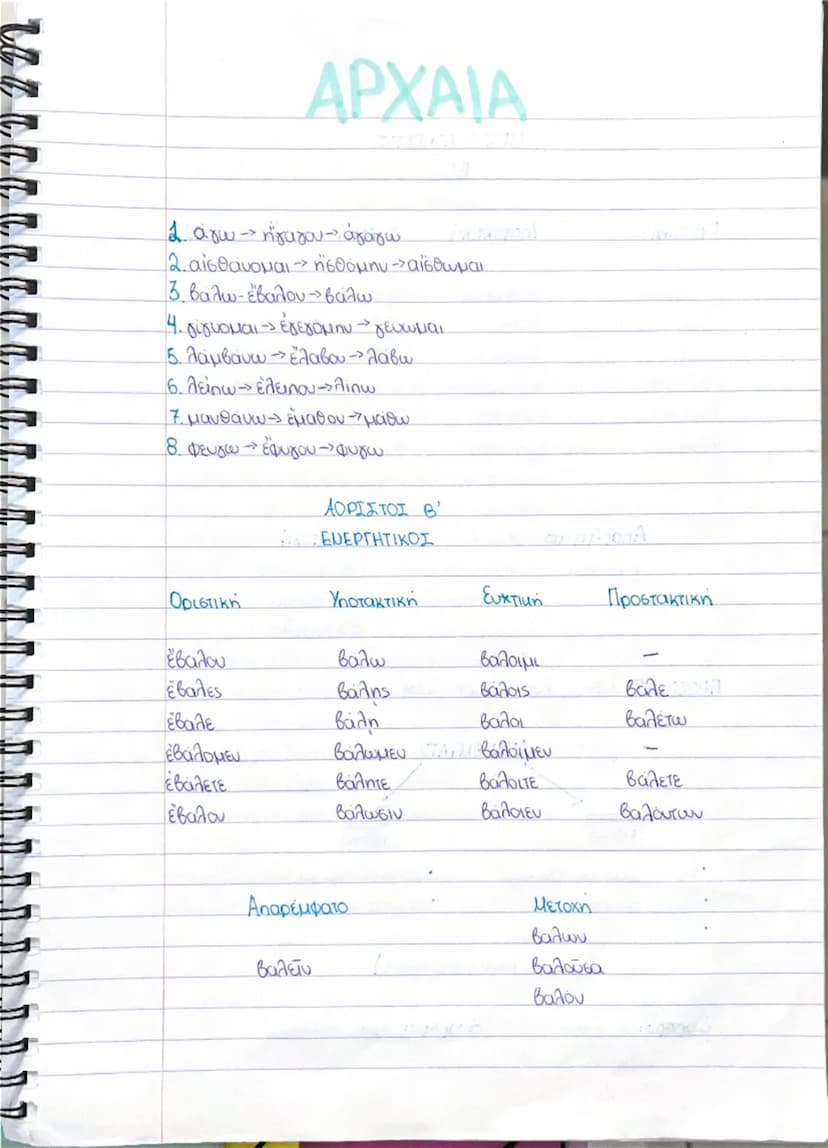 ΑΡΧΑΙΑ
1. άγω → ήγαγον → άγάγω
2. αἰσθάνομαι → ἠσθόμην → αἴσθωμαι
3. βαλω - ἔβαλον → βάλω
4. γίγνομαι → ἐγεγόμην → γενωμαι
5. λάμβανω → ἔλαβον → λάβω
6. λείπω → ἐλειπον → λιπω
7. μανθανω → ἐμαθον → μάθω
8. φευγω → ἔφυγον → φυγω
ΑΟΡΙΣΤΟΣ Β'
ΕΝΕΡΓΗΤΙΚΟΣ
Οριστική Υποτακτική Ευκτική Προστακτική
ἔβαλον βάλω βαλοιμι —
ἐβαλες βάλης βάλοις βάλε
ἐβαλε βάλῃ βαλοι βαλέτω
ἐβάλομεν βάλωμεν βάλοίμεν —
ἐβάλετε βάλητε βαλοιτε βάλετε
ἐβαλον βάλωσιν βάλοιεν βαλόντων
Απαρέμφατο Μετοχή
βαλων
βαλεῖν βαλοῦσα
βαλόν